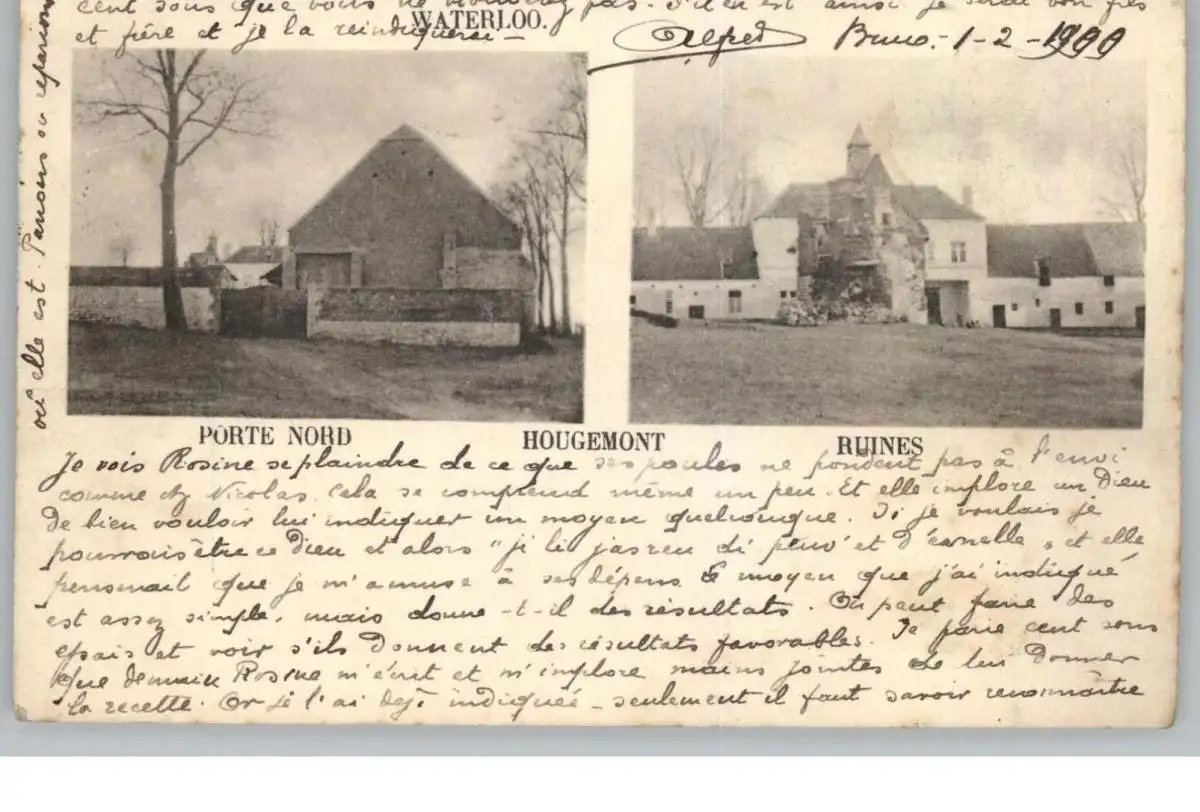 cent sous que vous ne trouverez pas. S'il en est ainsi je serai bon
et fière et je la reindiquerai —
WATERLOO.
Alfred Brux. - 1 - 2 - 1900
où elle est. Pensées ou reparions
PORTE NORD
HOUGEMONT
RUINES
Je vois Rosine se plaindre de ce que ses poules ne pondent pas à l'envi
comme chz Nicolas. Cela se comprend même un peu. Et elle implore un Dieu
de bien vouloir lui indiquer un moyen quelconque. Si je voulais je
pourrais être ce Dieu et alors "ji li jasreu di et d' " et elle
penserait que je m'amuse à ses dépens. Le moyen que j'ai indiqué
est assez simple, mais donne-t-il des résultats. On peut faire des
essais et voir s'ils donnent des résultats favorables. Je parie cent sous
que demain Rosine m'écrit et m'implore mains jointes de lui donner
la recette. Or je l'ai déjà indiquée - seulement il faut savoir reconnaître